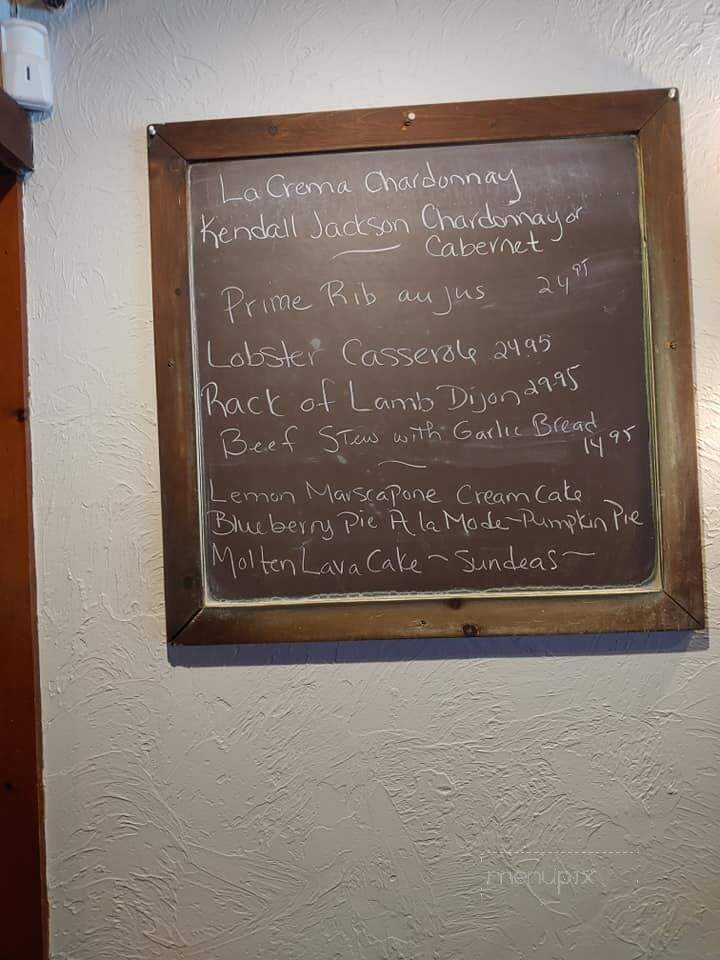 La Crema Chardonnay
Kendall Jackson Chardonnay or
Cabernet
Prime Rib au jus 24 95
Lobster Casserole 24.95
Rack of Lamb Dijon 29.95
Beef Stew with Garlic Bread
14 95
Lemon Marscapone Cream Cake
Blueberry Pie A la Mode ~ Pumpkin Pie
Molten Lava Cake ~ Sundeas ~
menupix